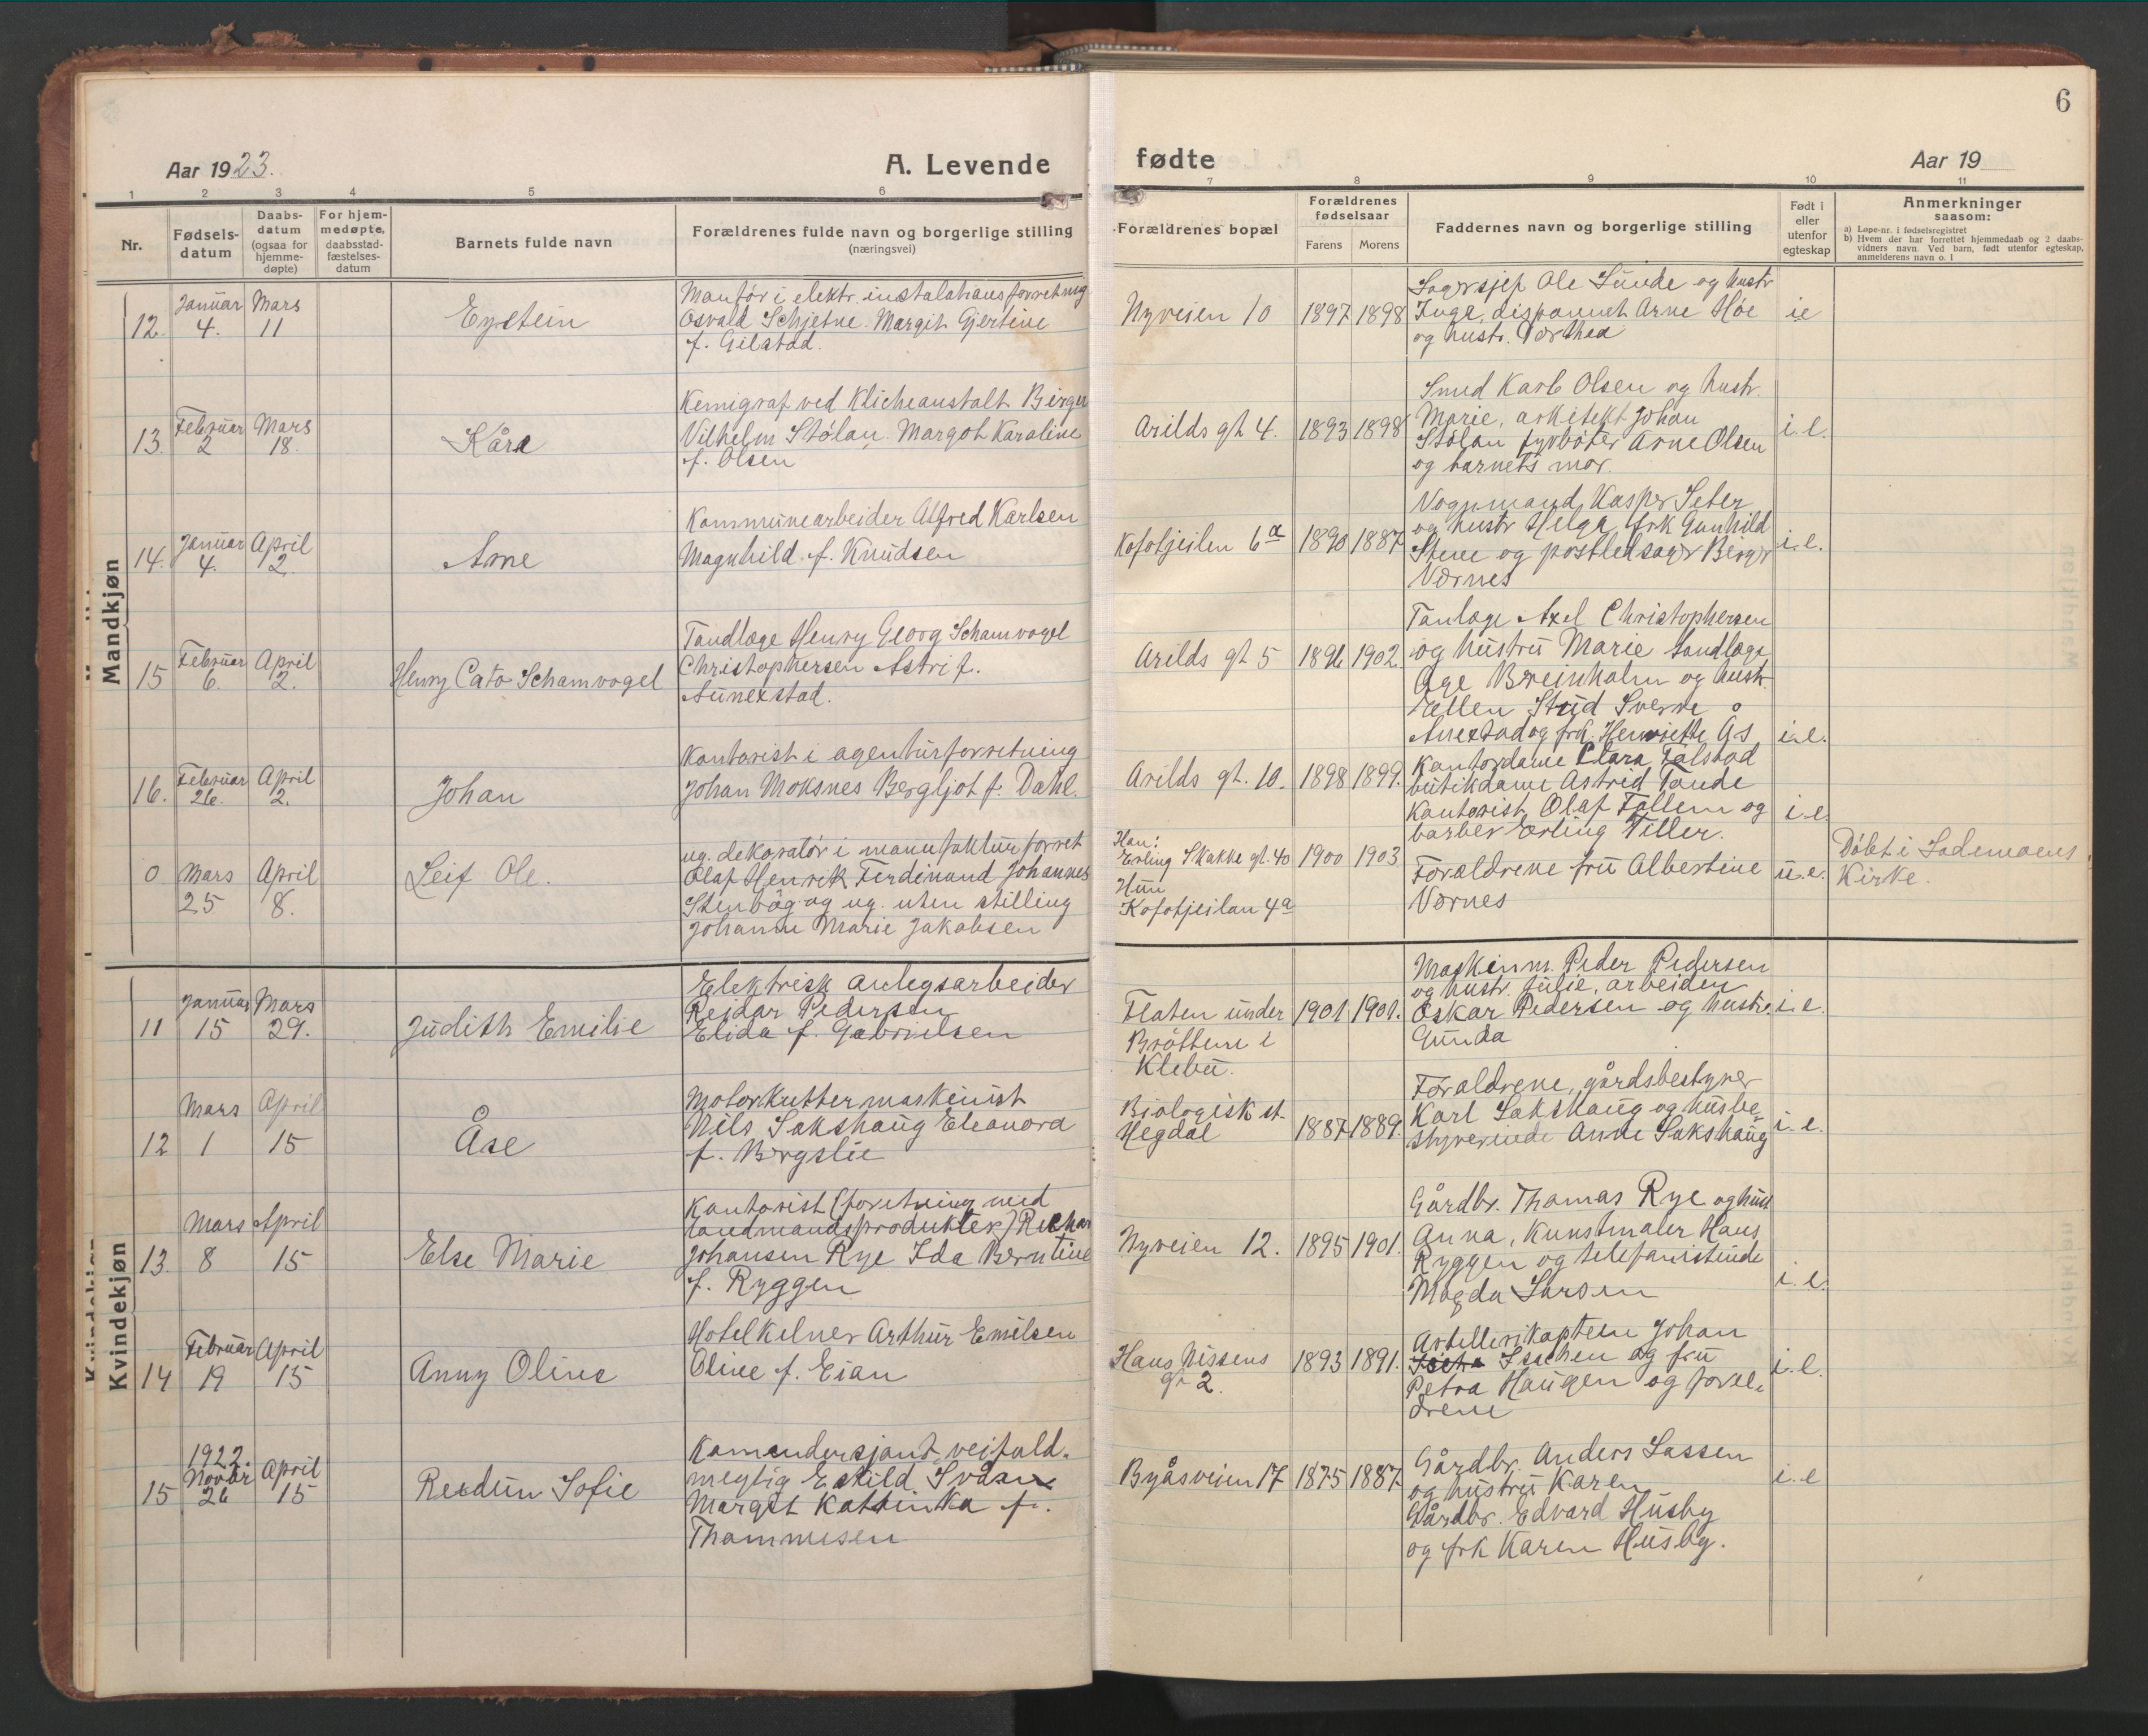 6
Aar 1923.
A. Levende
fødte
Aar 19
1 2 3 4 5 6 7 8 9 10 11
Nr.
Fødsels-
datum
Daabs-
datum
(ogsaa for
hjemme-
døpte)
For hjem-
medøpte,
daabsstad-
fæstelses-
datum
Barnets fulde navn
Forældrenes fulde navn og borgerlige stilling
(næringsvei)
Forældrenes bopæl
Forældrenes
fødselsaar
Farens Morens
Faddernes navn og borgerlige stilling
Født i
eller
utenfor
egteskap
Anmerkninger
saasom:
a) Løpe-nr. i fødselsregistret
b) Hvem der har forrettet hjemmedaab og 2 daabs-
vidners navn. Ved barn, født utenfor egteskap,
anmelderens navn o. l
Mandkjøn
12. Januar 4. Mars 11
Eystein
Montør i elektr. instalationsforretning
Osvald Schjetne. Margit Gjertine
f. Gilstad.
Nyveien 10
1897 1898
Lagersjef Ole Sunde og hustr
Inga, disponent Arne Høe
og hustr. Dorthea
i e
13. Februar 2 Mars 18.
Kåre
Kemigraf ved Klicheanstalt Birger
Vilhelm Stølan. Margot Karoline
f. Olsen
Arilds gt 4.
1893 1898
Smed Karl Olsen og hustr.
Marie, arkitekt Johan
Stølan fyrbøter Arne Olsen
og barnets mor.
i. e.
14. Januar 4. April 2.
Arne
Kommunearbeider Alfred Karlsen
Magnhild. f. Knudsen
Kofotjeilen 6a
1890 1887
Vognmand Kasper Seter
og hustr Helga, frk Gunhild
Stene og postledsager Birger
Værnes
i. e.
15 Februar 6. April 2.
Henry Cato Schamvogel
Tandlæge Henry Georg Schamvogel
Christophersen Astri f.
Aunexstad.
Arilds gt 5
1896 1902.
Tanlæge Axel Christophersen
og hustru Marie tandlæge
Åge Breinholm og hustr.
Ellen Stud Sverre
Anexstad og frk. Henriette Ås
i. e.
16. Februar 26. April 2.
Johan
Kontorist i agenturforretning
Johan Moksnes Bergljot f. Dahl.
Arilds gt. 10.
1898 1899.
Kontordame Clara Falstad
butikdame Astrid Tande
Kontorist Olaf Tollem og
barber Erling Tiller.
i. e.
0 Mars 25 April 8.
Leif Ole.
ug. dekoratør i manufakturforret
Olaf Henrik Ferdinand Johannes
Stenbåg og ug. uten stilling
Johanne Marie Jakobsen
Han:
Erling Skakke gt. 40
Hun
Kofotjeilan 4a
1900 1903
Forældrene fru Albertine
Værnes
u. e.
Døbt i Lademoens
Kirke.
Kvindekjøn
11 Januar 15 Mars 29.
Judith Emilie
Elektrisk anlegsarbeider
Reidar Pedersen
Elida f. Gabrielsen
Flaten under
Brøttem i
Klebu.
1901 1901.
Maskinm. Peder Pedersen
og hustr. Julie, arbeider
Oskar Pedersen og hustr.
Gunda
i. e.
12 Mars 1 April 15
Åse
Motorkuttermaskinist
Nils Sakshaug Eleanora
f. Bergslie
Biologisk st.
Hegdal
1887 1889.
Forældrene, gårdsbestyrer
Karl Sakshaug og husbe-
styrerinde Anne Sakshaug
i. e.
13. Mars 8 April 15
Else Marie
Kontorist (foretning med
landmandsprodukter) Richar
Johansen Rye Ida Berntine
f. Ryggen
Nyveien 12.
1895 1901.
Gårdbr. Thomas Rye og hust
Anna, Kunstmaler Hans
Ryggen og telefonistinde
Magda Larsen
i. e.
14 Februar 19 April 15
Anny Oline
Hotelkelner Arthur Emilsen
Oline f. Eian
Hans Nissens
gt 2.
1893 1891.
Artillerikaptein Johan
Isachsen og fru
Petra Haugen og foræl-
drene
i. e.
15 1922. Novbr 26 April 15
Reidun Sofie
Komendersjant veifuld-
megtig Eskild Svåsan
Margit Kathinka f.
Thommesen
Byåsveien 17
1875 1887
Gårdbr. Anders Lassen
og hustru Karen
Gårdbr. Edvard Husby
og frk Karen Husby.
i. e